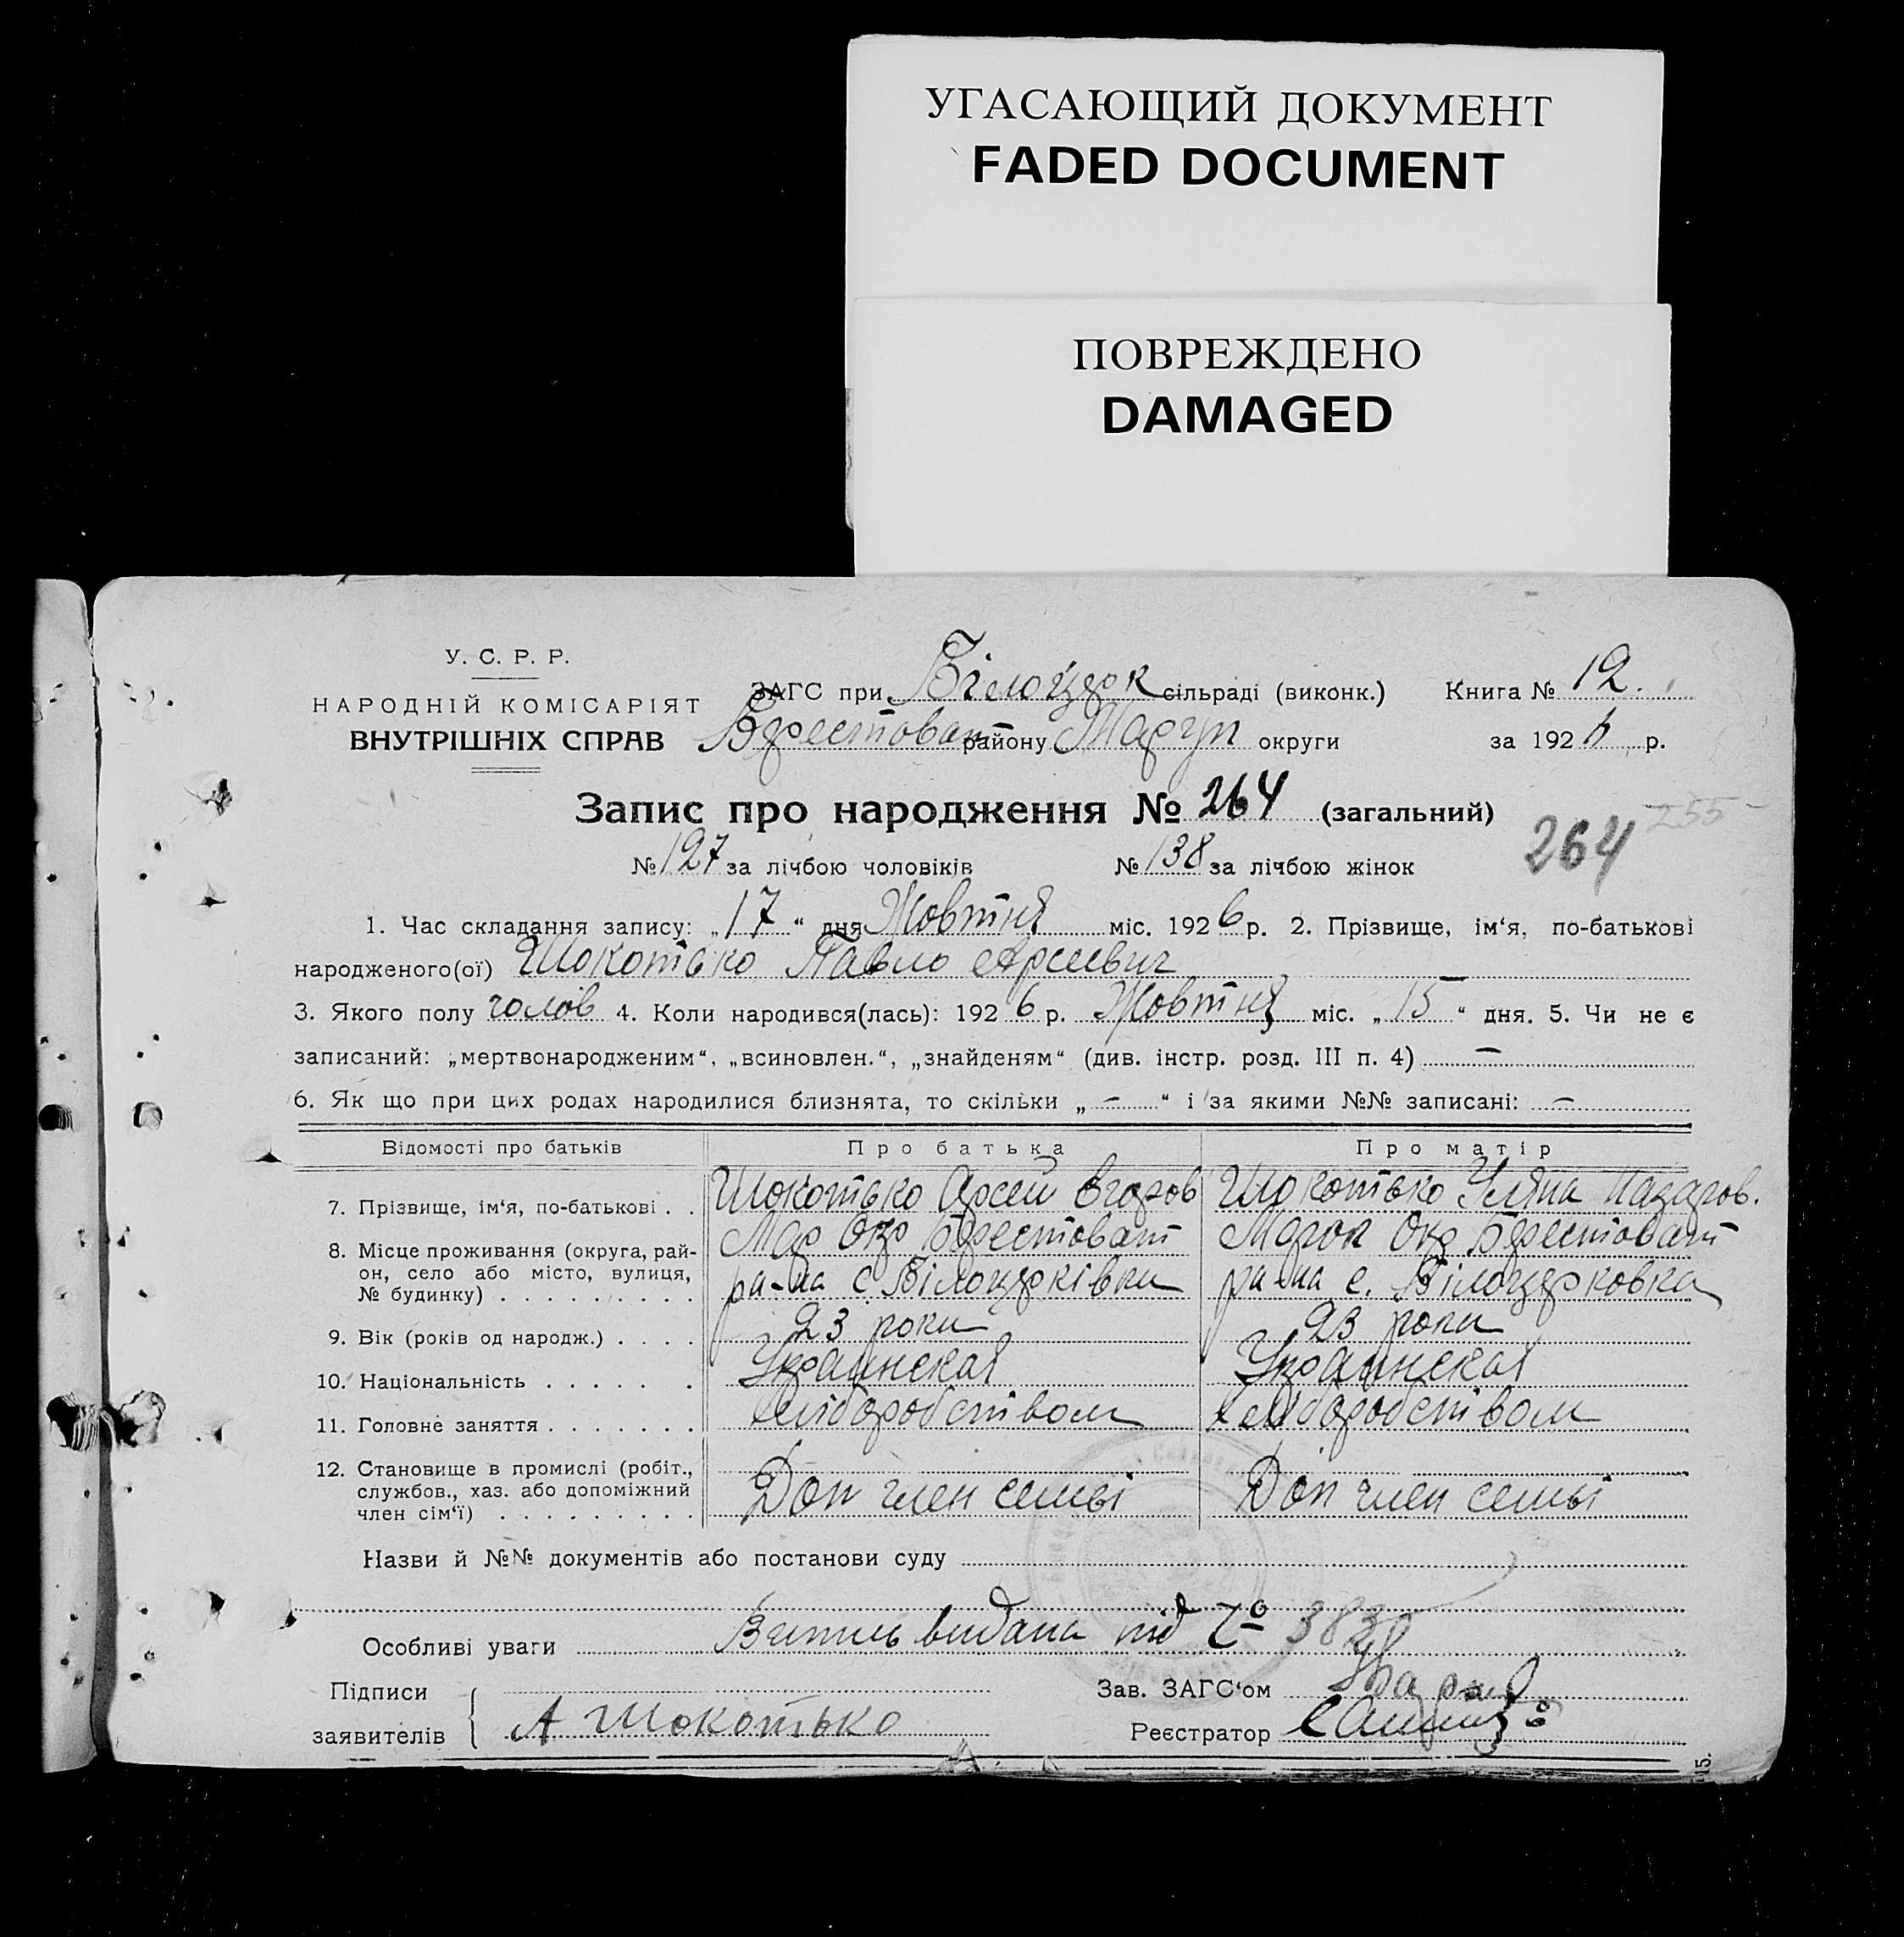 УГАСАЮЩИЙ ДОКУМЕНТ
FADED DOCUMENT
ПОВРЕЖДЕНО
DAMAGED
У. С. Р. Р.
НАРОДНІЙ КОМІСАРІЯТ
ВНУТРІШНІХ СПРАВ
ЗАГС при Білоцерк сільраді (виконк.) Книга № 12.
Берестоват району Маріуп округи за 1926 р.
Запис про народження № 264 (загальний)
264 255
№ 127 за лічбою чоловіків № 138 за лічбою жінок
1. Час складання запису: „17“ дня Жовтня міс. 1926 р. 2. Прізвище, ім‘я, по-батькові
народженого(ої) Шокотько Павло Арсеевич
3. Якого полу чолов 4. Коли народився(лась): 1926 р. Жовтня міс. „15“ дня. 5. Чи не є
записаний: „мертвонародженим“, „всиновлен.“, „знайденям“ (див. інстр. розд. III п. 4) —
6. Як що при цих родах народилися близнята, то скільки „—“ і за якими №№ записані: —
Відомості про батьків Про батька Про матір
7. Прізвище, ім‘я, по-батькові . . Шокотько Арсей Егоров Шокотько Уляна Назаров.
8. Місце проживання (округа, рай- Мар Окр Берестоват Окр Берестоват
он, село або місто, вулиця, ра-на с Білоцерківки ра-на с. Білоцерковка
№ будинку) . . . . . . . . .
9. Вік (років од народж.) . . . . 23 роки 23 роки
10. Національність . . . . . . Украинская Украинская
11. Головне заняття . . . . . . . хліборобством хліборобством
12. Становище в промислі (робіт.,
службов., хаз. або допоміжний Доп член семьі Доп член семьі
член сім‘ї) . . . . . . . . .
Назви й №№ документів або постанови суду
Особливі уваги Випись видана під № 383
Підписи Зав. ЗАГС‘ом
заявителів А Шокотько Реєстратор